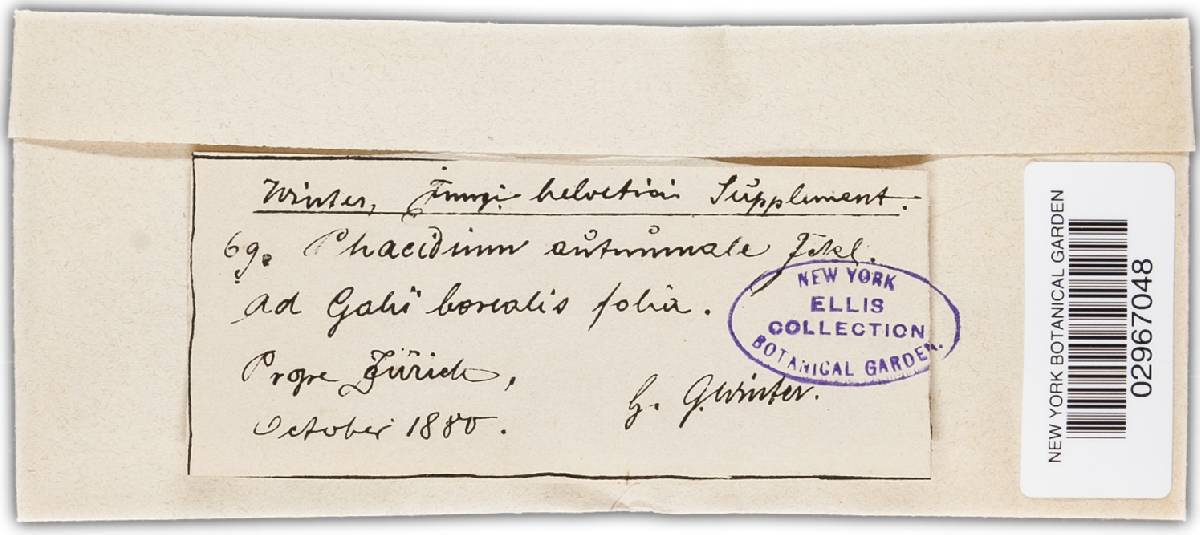 Winter, Fungi helvetici Supplement.
69. Phacidium autumnale Fckl.
Ad Galii borealis folia.
Prope Zürich,
October 1880.
G. Winter.
NEW YORK
ELLIS
COLLECTION
BOTANICAL GARDEN.
NEW YORK BOTANICAL GARDEN
02967048